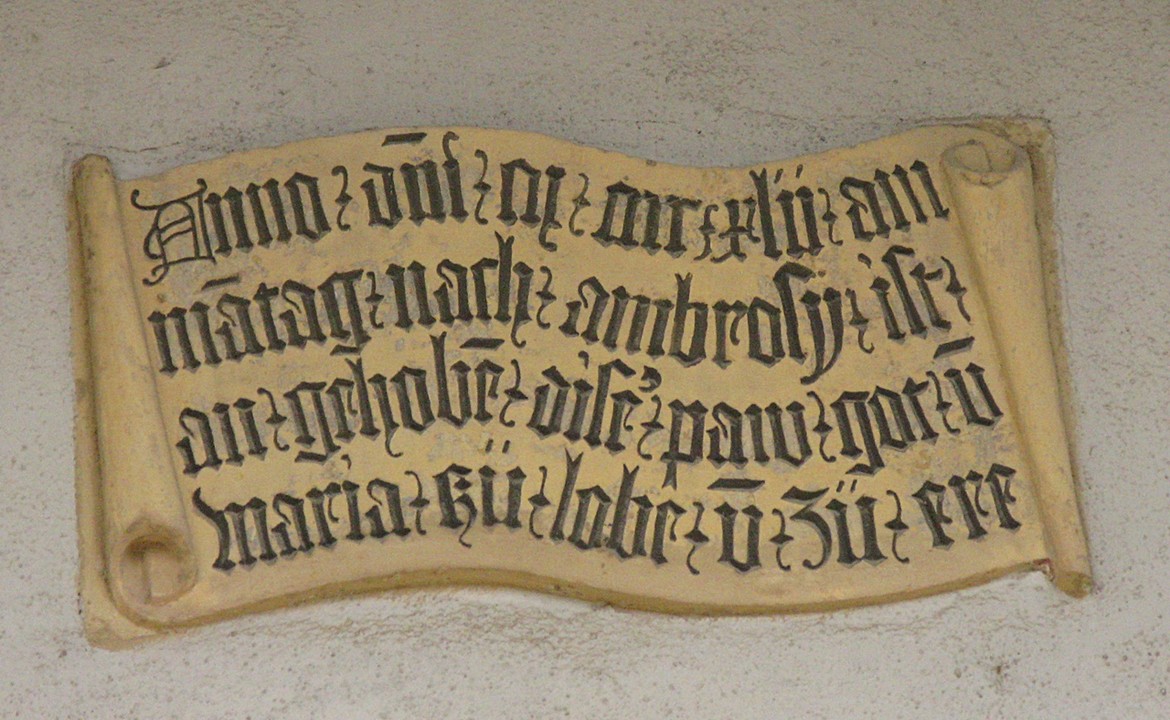 Anno · dn̄i · xlii · am
mātag · nach · ambrosÿ · ist ·
an · gēhobē · dise' · paw · got · v̄
maria · zü · lobe · v̄ · zü · ere